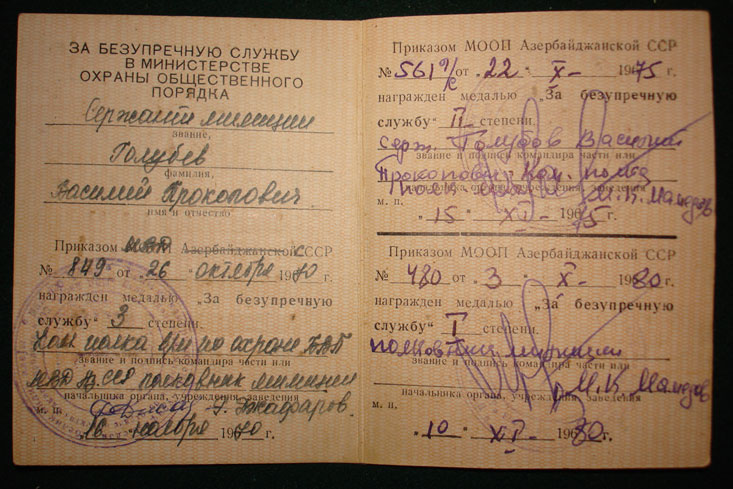 ЗА БЕЗУПРЕЧНУЮ СЛУЖБУ
В МИНИСТЕРСТВЕ
ОХРАНЫ ОБЩЕСТВЕННОГО
ПОРЯДКА
Сержант милиции
звание,
Голубев
фамилия,
Василий Прокопович
имя и отчество
Приказом МВД Азербайджанской ССР
№ 849 от 26 октября 1970 г.
награжден медалью „За безупречную
службу" 3 степени.
Ком полка м-ции по охране
звание и подпись командира части или
МВД Аз ССР полковник милиции
начальника органа, учреждения, заведения
м. п. Джафаров
16 ноября 1970 г.
Приказом МООП Азербайджанской ССР
№ 561 л/с от 22 X 1975 г.
награжден медалью „За безупречную
службу" II степени.
серж. Голубов Василий
звание и подпись командира части или
Прокопович Ком. полка
начальника органа, учреждения, заведения
м. п. М.К. Мамедов
15 XI 1975 г.
Приказом МООП Азербайджанской ССР
№ 480 от 3 X 1980 г.
награжден медалью „За безупречную
службу" I степени.
полковник милиции
звание и подпись командира части или
М.К Мамедов
начальника органа, учреждения, заведения
м. п.
10 XI 1980 г.